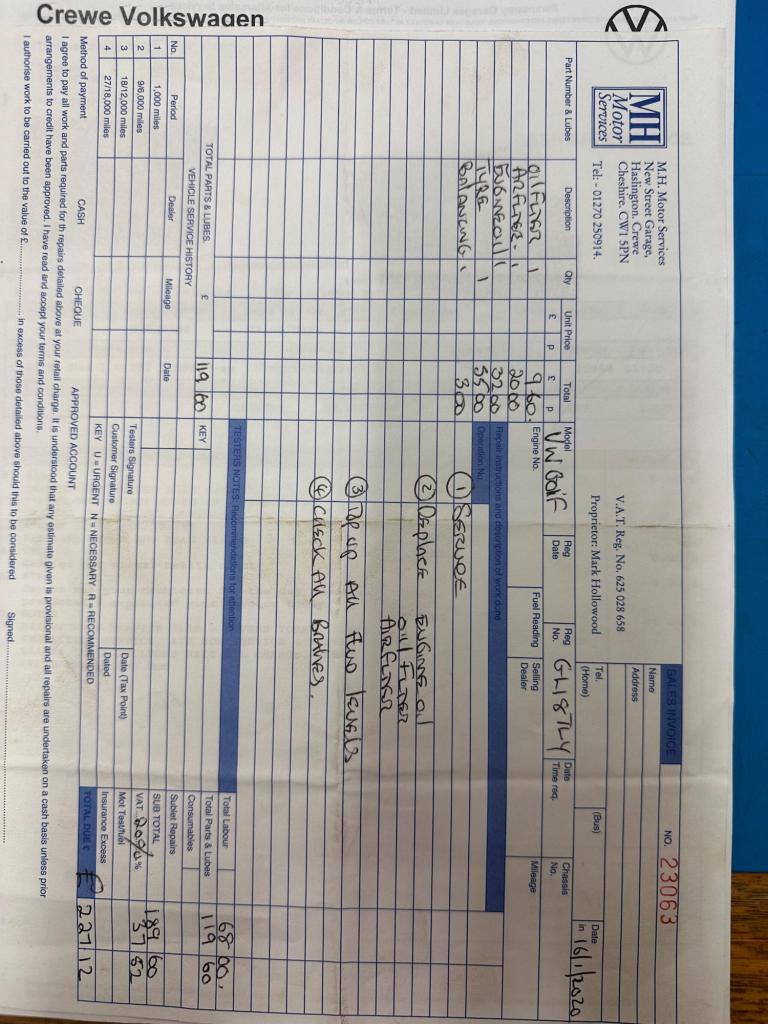 Crewe Volkswagen
MH
Motor
Services
M.H. Motor Services
New Street Garage,
Haslington. Crewe
Cheshire. CW1 5PN
Tel: - 01270 250914.
V.A.T. Reg. No. 625 028 658
Proprietor: Mark Hollowood
SALES INVOICE
NO. 23063
Name
Address
Tel. (Home)
(Bus)
Date in 16/1/2020
Part Number & Lubes
Description
Qty
Unit Price £ p
Total £ p
Model VW Golf
Reg Date
Reg No. GL18TLY
Date Time req.
Chassis No.
Engine No.
Fuel Reading
Selling Dealer
Mileage
Oil FLTER 1 9 60.
AIRFLTER. 1 20 00
ENGINE OIL 1 32 00
TYRE 1 55 00
BALANCING. 1 3 00
Repair instructions and description of work done
Operation No.
① SERVICE
② Replace ENGINE Oil
Oil FLTER
AIRFLTER
③ Top up All fluid levels
④ Check All Brakes.
TESTERS NOTES: Recommendations for attention
TOTAL PARTS & LUBES. £ 119 60
KEY
VEHICLE SERVICE HISTORY
No.
Period
Dealer
Mileage
Date
1 1,000 miles
2 9/6,000 miles
3 18/12,000 miles
4 27/18,000 miles
Testers Signature
Customer Signature
Date (Tax Point)
Dated
KEY U = URGENT N = NECESSARY R = RECOMMENDED
Total Labour 68 00.
Total Parts & Lubes 119 60
Consumables
Sublet Repairs
SUB TOTAL 189 60
VAT 20% % 37 52
Mot Test/fuel
Insurance Excess
TOTAL DUE £ £ 227 12
Method of payment
CASH
CHEQUE
APPROVED ACCOUNT
I agree to pay all work and parts required for th repairs detailed above at your retail charge. It is understood that any estimate given is provisional and all repairs are undertaken on a cash basis unless prior
arrangements to credit have been approved. I have read and accept your terms and conditions.
I authorise work to be carried out to the value of £.................. in excess of those detailed above should this to be considered Signed..................